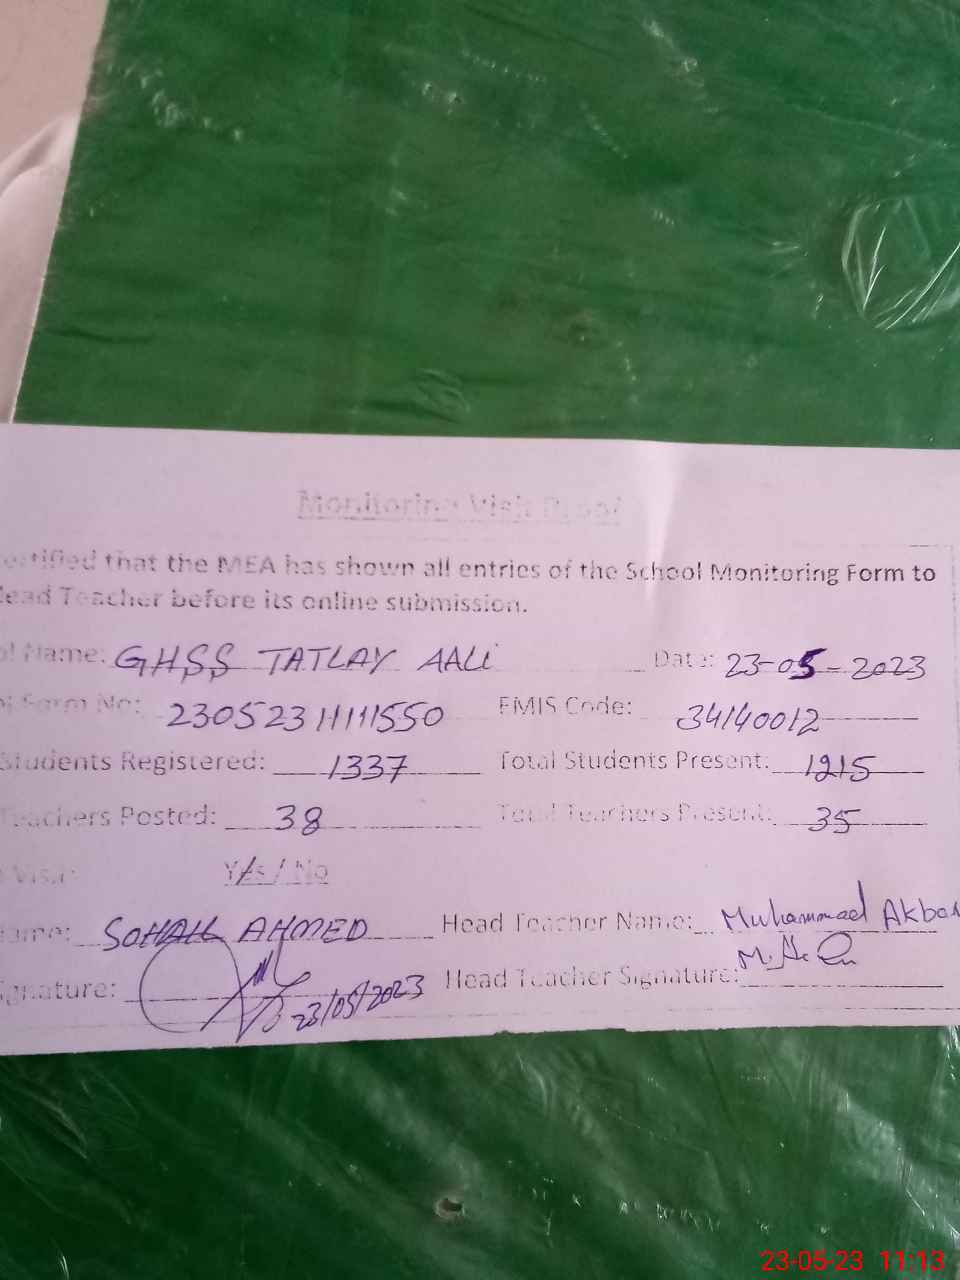 Monitoring Visit Proof
ertified that the MEA has shown all entries of the School Monitoring Form to
ead Teacher before its online submission.
ol Name: GHSS TATLAY AALI Date: 23-05-2023
Form No: 23052311111550 EMIS Code: 34140012
Students Registered: 1337 Total Students Present: 1215
Teachers Posted: 38 Total Teachers Present: 35
Visit: Yes / No
ame: SOHAIL AHMED Head Teacher Name: Muhammad Akbar
ignature: 23/05/2023 Head Teacher Signature:
23-05-23 11:13